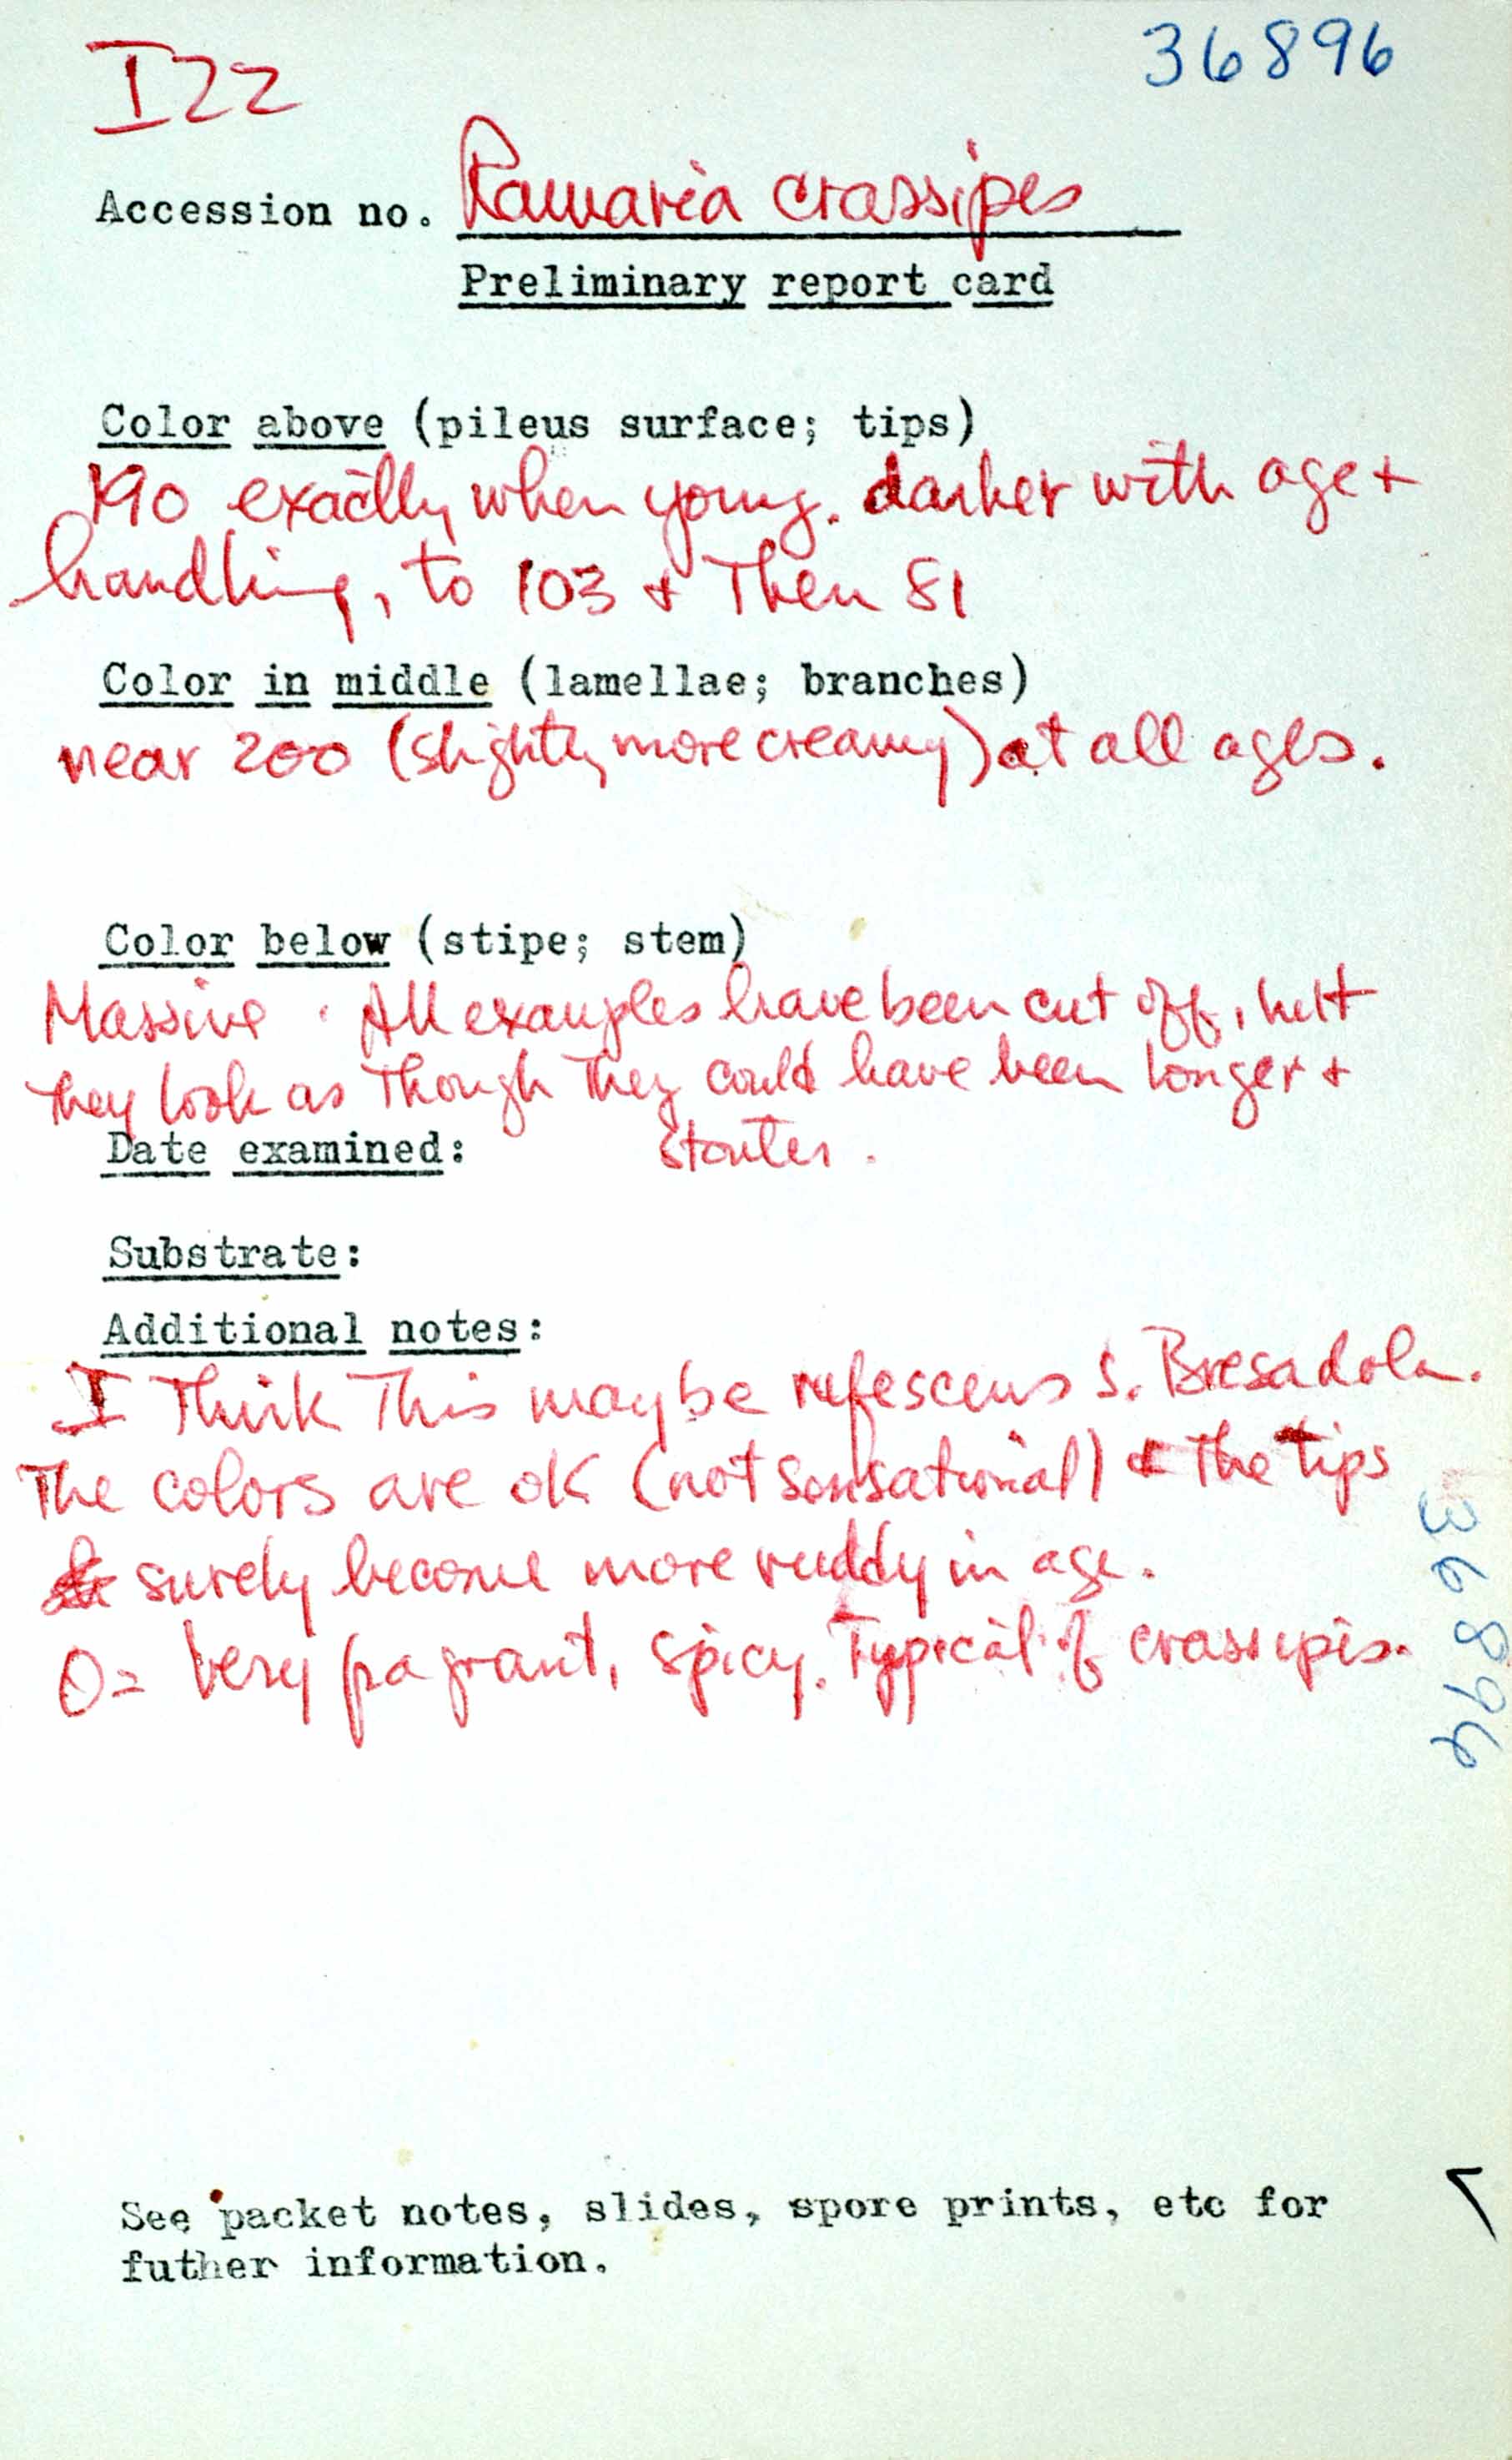 I22
36896
Accession no. Ramaria crassipes
Preliminary report card
Color above (pileus surface; tips)
190 exactly when young. darker with age +
handling, to 103 + Then 81
Color in middle (lamellae; branches)
near 200 (slightly more creamy) at all ages.
Color below (stipe; stem)
Massive. All examples have been cut off, but
they look as Though They could have been longer +
stouter.
Date examined:
Substrate:
Additional notes:
I Think This may be rufescens S. Bresadola.
The colors are OK (not sensational) & the tips
surely become more ruddy in age.
O = Very fragrant, spicy. Typical of crassipes.
36896
See packet notes, slides, spore prints, etc for
futher information.